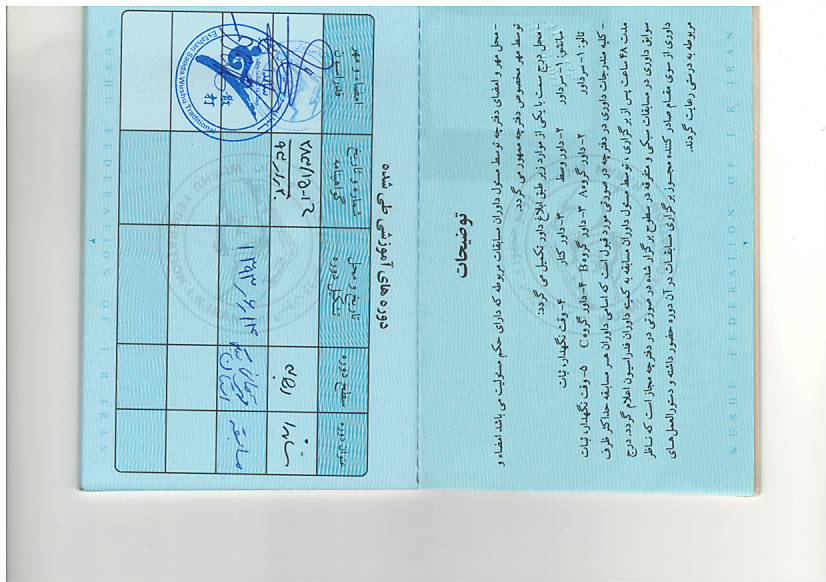 توضیحات
- محل مهر و امضای دفترچه توسط مسئول داوران مسابقات مربوطه که دارای حکم مسئولیت می باشد امضاء و
توسط مهر مخصوص دفترچه ممهور می گردد.
- محل درج سمت با یکی از موارد زیر طبق ابلاغ داور تکمیل می گردد:
سانشو: ۱- سرداور ۲- داور وسط ۳- داور کنار ۴- وقت نگهدار، ثبات
تالو: ۱- سرداور ۲- داور گروه A ۳- داور گروه B ۴- داور گروه C ۵- وقت نگهدار، ثبات
- کلیه مندرجات داوری در دفترچه در صورتی مورد قبول است که اسامی داوران هر مسابقه حداکثر ظرف
مدت ۴۸ ساعت پس از برگزاری، توسط مسئول داوران مسابقه به کمیته داوران فدراسیون اعلام گردد. درج
سوابق داوری در مسابقات سبکی و متفرقه در سطوح برگزار شده در صورتی در دفترچه مجاز است که ناظر
داوری از سوی مقام صادر کننده مجوز برگزاری مسابقات در آن دوره حضور داشته و دستورالعمل های
مربوطه به درستی رعایت گردند.
WUSHU FEDERATION OF I.R.IRAN
دوره های آموزشی طی شده
عنوان دوره
سطح دوره
تاریخ و محل تشکیل دوره
شماره و تاریخ گواهینامه
امضا و مهر فدراسیون
ساندا
مسابقه
استان
Esfahan Sanda Wushu Traditional
WUSHU FEDERATION OF I.R.IRAN